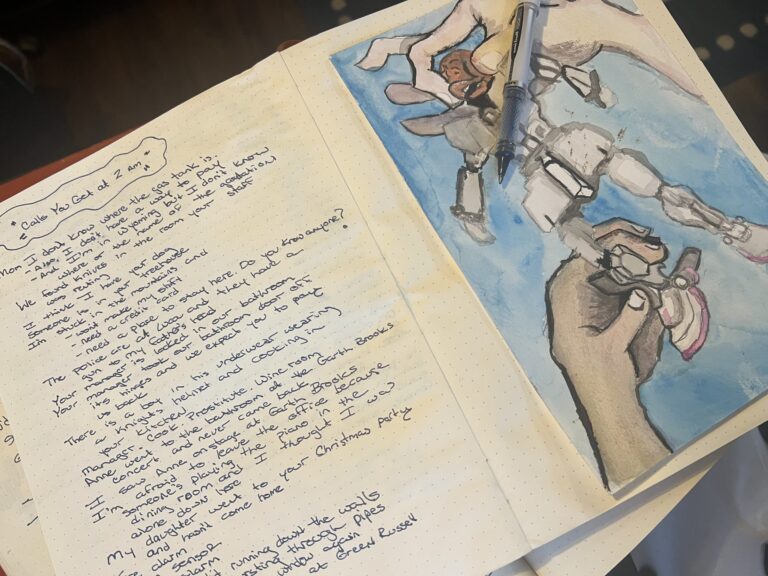 * Calls You Get at 2 Am *
Mom I don't know where the gas tank is
- Also, I don't have a way to pay
- And I'm in Wyoming but I don't know
where or the name of the gas station
We found knives in the room your staff
was renting
I think I have your dog
Someone is in your treehouse
I'm stuck in the mountains and
- won't make my shift
- need a credit card
- need a place to stay here. Do you know anyone?
The police are at Luca and they have a
gun to my father's head
Your manager is locked in our bathroom
Your manager took our bathroom door off
its hinges and we expect you to pay
us back
There is a boy in his underwear wearing
a knight's helmet and cooking in
your kitchen
Manager. Cook. Prostitute. Wine room
Anne went to the bathroom at the Garth Brooks
concert and never came back
I saw Anne on stage at Garth Brooks
I'm afraid to leave the office because
someone's playing the piano in the
dining room and I thought I was
alone down here
My daughter went to your Christmas party
and hasn't come home
alarm
sensor
alarm
running down the walls
through pipes
window again
at Green Russell